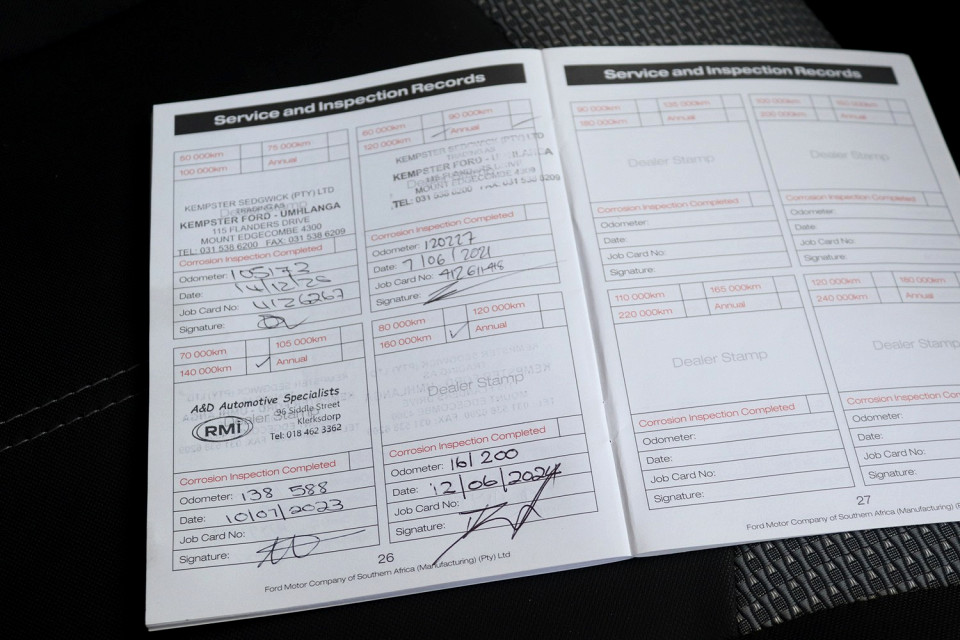 Service and Inspection Records
50 000km 75 000km
100 000km Annual
KEMPSTER SEDGWICK (PTY) LTD
TRADING AS
KEMPSTER FORD - UMHLANGA
115 FLANDERS DRIVE
MOUNT EDGECOMBE 4300
TEL: 031 538 6200 FAX: 031 538 6209
Corrosion Inspection Completed
Odometer: 105173
Date: 14/12/20
Job Card No: 4126267
Signature:
60 000km 90 000km
120 000km Annual
KEMPSTER SEDGWICK (PTY) LTD
TRADING AS
KEMPSTER FORD - UMHLANGA
MOUNT EDGECOMBE 4300
TEL: 031 538 6200 FAX: 031 538 6209
Corrosion Inspection Completed
Odometer: 120227
Date: 7/06/2021
Job Card No:
Signature:
70 000km 105 000km
140 000km ✓ Annual
A&D Automotive Specialists
RMI
96 Siddle Street
Klerksdorp
Tel: 018 462 3362
Corrosion Inspection Completed
Odometer: 138 588
Date: 10/07/2023
Job Card No:
Signature:
80 000km 120 000km
160 000km ✓ Annual
Dealer Stamp
Corrosion Inspection Completed
Odometer: 161 200
Date: 12/06/2024
Job Card No:
Signature:
26
Ford Motor Company of Southern Africa (Manufacturing) (Pty) Ltd
Service and Inspection Records
90 000km 135 000km
180 000km Annual
Dealer Stamp
Corrosion Inspection Completed
Odometer:
Date:
Job Card No:
Signature:
100 000km 150 000km
200 000km Annual
Dealer Stamp
Corrosion Inspection Completed
Odometer:
Date:
Job Card No:
Signature:
110 000km 165 000km
220 000km Annual
Dealer Stamp
Corrosion Inspection Completed
Odometer:
Date:
Job Card No:
Signature:
120 000km 180 000km
240 000km Annual
Dealer Stamp
Corrosion Inspection Co
Odometer:
Date:
Job Card No:
Signature:
27
Ford Motor Company of Southern Africa (Manufacturing) (P